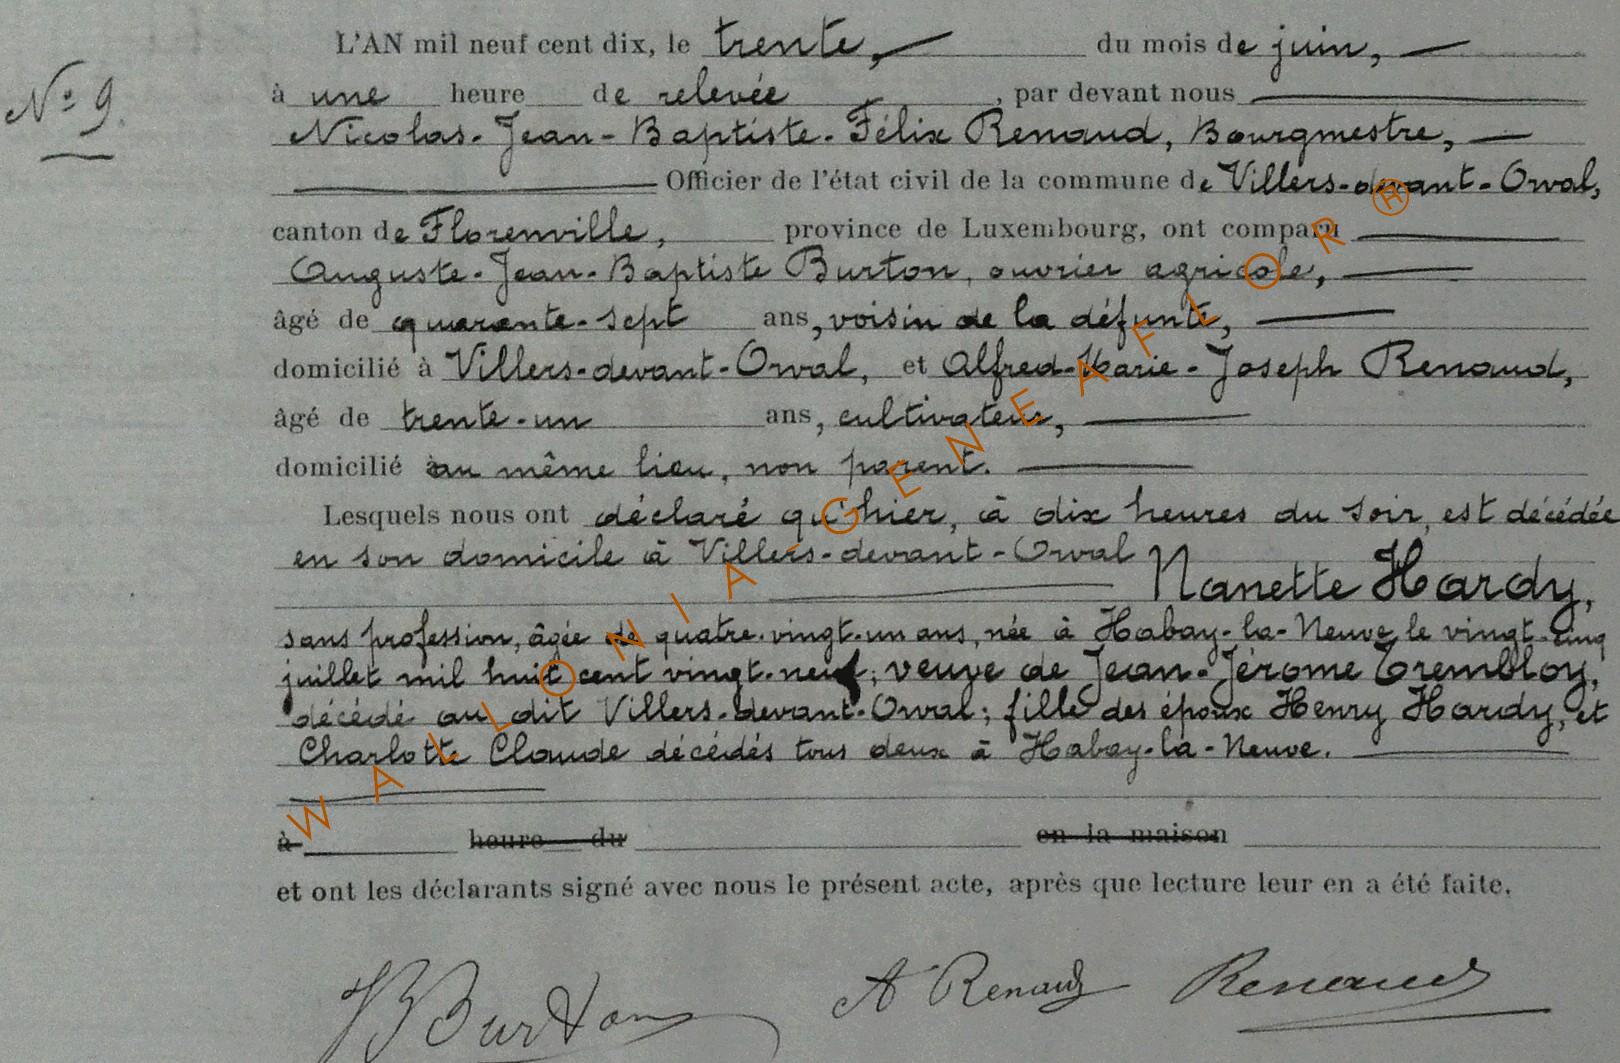 L'AN mil neuf cent dix, le trente, du mois de juin,
N° 9.
à une heure de relevée, par devant nous
Nicolas-Jean-Baptiste-Félix Renaud, Bourgmestre,
Officier de l'état civil de la commune de Villers-devant-Orval,
canton de Florenville, province de Luxembourg, ont comparu
Auguste-Jean-Baptiste Burton, ouvrier agricole,
âgé de quarante-sept ans, voisin de la défunte,
domicilié à Villers-devant-Orval, et Alfred-Marie-Joseph Renaud,
âgé de trente-un ans, cultivateur,
domicilié au même lieu, non parent.
Lesquels nous ont déclaré qu'hier, à dix heures du soir, est décédée
en son domicile à Villers-devant-Orval
Nanette Hardy,
sans profession, âgée de quatre-vingt-un ans, née à Habay-la-Neuve le vingt-cinq
juillet mil huit cent vingt-neuf; veuve de Jean-Jérome Trembloy,
décédé au dit Villers-devant-Orval; fille des époux Henry Hardy, et
Charlotte Claude décédés tous deux à Habay-la-Neuve.
à heure du en la maison
et ont les déclarants signé avec nous le présent acte, après que lecture leur en a été faite.
JB Burton A Renaud Renaud
WALLONIA-GENEAFLOR ®